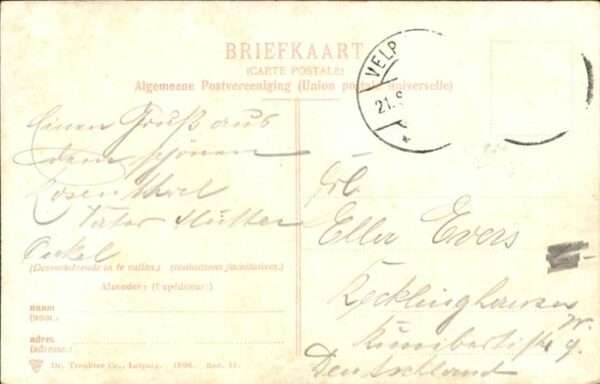 BRIEFKAART
(CARTE POSTALE)
Algemeene Postvereeniging (Union postale universelle)
VELP
21.
Einen Gruß aus
dem schönen
Rosenthal
Vater Mutter
Onkel
Frl.
Ella Evers
Recklinghausen
Kunibertistr. 9.
Deutschland
(Desverkiezende in te vullen.) (Indications facultatives.)
Afzender: (Expéditeur)
naam
(nom.)
adres
(adresse.)
Dr. Trenkler Co., Leipzig. 1906.